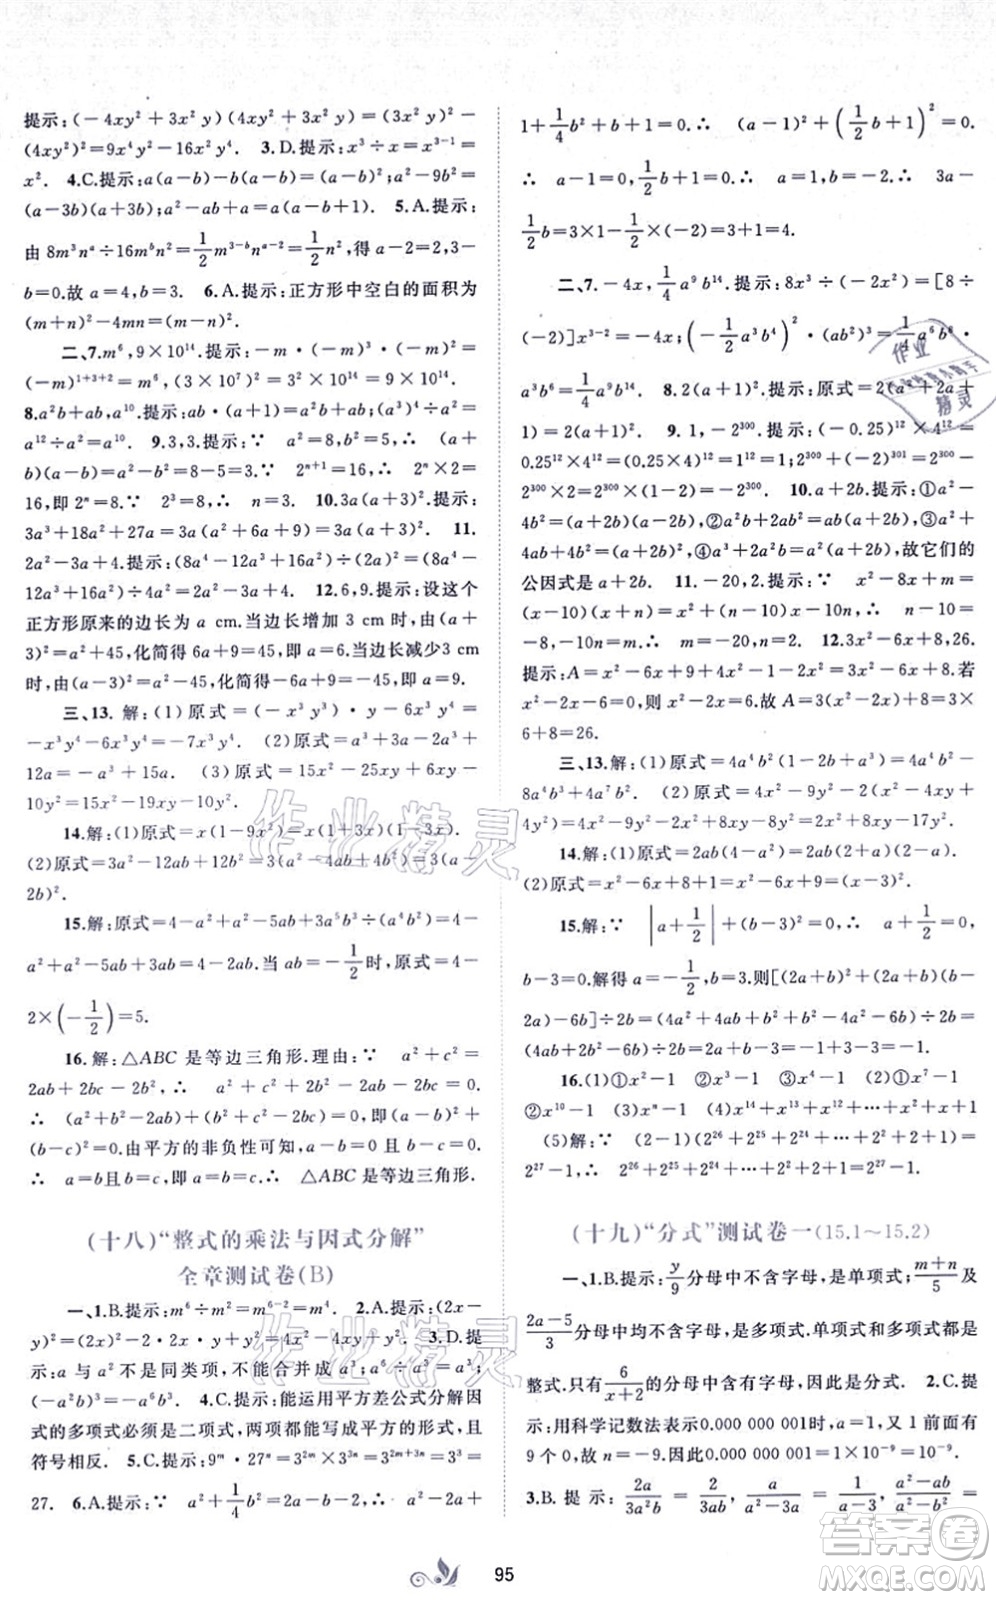 提示:(-4xy²+3x²y)(4xy²+3x²y)=(3x²y)²-
(4xy²)²=9x⁴y²-16x²y⁴. 3.D.提示:x³÷x=x³⁻¹=
x². 4.C.提示:a(a-b)-b(a-b)=(a-b)²;a²-2ab-3b²=
(a-3b)(a+b);a²-ab+a=a(a-b+1). 5.A.提示:
由8m³nᵃ÷16mᵇn²=½m³⁻ᵇnᵃ⁻²=½n²,得a-2=2,3-
b=0.故a=4,b=3. 6.A.提示:正方形中空白的面积为
(m+n)²-4mn=(m-n)².
二、7.m⁶,9×10¹⁴.提示:-m·(-m)²·(-m)³=
(-m)¹⁺³⁺²=m⁶,(3×10⁷)²=3²×(10⁷)²=9×10¹⁴.
8.a²b+ab,a¹⁰.提示:ab·(a+1)=a²b+ab,(a³)⁴÷a²=
a¹²÷a²=a¹⁰. 9.3,3.提示:∵ a²=8,b²=5,∴ (a+
b)(a-b)=a²-b²=8-5=3.∵ 2ⁿ⁺¹=16,∴ 2ⁿ×2=
16,即2ⁿ=8.∵ 2³=8,∴ n=3. 10.3a(a+3)².提示:
3a³+18a²+27a=3a(a²+6a+9)=3a(a+3)². 11.
2a²-3a+4.提示:(8a⁴-12a³+16a²)÷(2a)²=(8a⁴-
12a³+16a²)÷4a²=2a²-3a+4. 12.6,9.提示:设这个
正方形原来的边长为a cm.当边长增加3 cm时,由(a+
3)²=a²+45,化简得6a+9=45,故a=6.当边长减少3 cm
时,由(a-3)²=a²-45,化简得-6a+9=-45,故a=9.
三、13.解:(1)原式=(-x³y³)·y-6x³y⁴=
-x³y⁴-6x³y⁴=-7x³y⁴. (2)原式=a²+3a-2a²+
12a=-a²+15a. (3)原式=15x²-6xy+4xy-
10y²=15x²-10y²+4xy-6xy=15x²-2xy-10y².
14.解:(1)原式=x(1-9x²)=x(1+3x)(1-3x).
(2)原式=3a²-12ab+12b²=3(a²-4ab+4b²)=3(a-
2b)².
15.解:原式=4-a²+a²-5ab+3a⁵b³÷(a⁴b²)=4-
a²+a²-5ab+3ab=4-2ab.当ab=-½时,原式=4-
2×(-½)=5.
16.解:△ABC是等边三角形.理由:∵ a²+c²=
2ab+2bc-2b²,∴ a²+c²+2b²-2ab-2bc=0.
∴ (a²+b²-2ab)+(b²+c²-2bc)=0,即(a-b)²+
(b-c)²=0,由平方的非负性可知,a-b=0且b-c=0.
∴ a=b且b=c.∴ a=b=c.∴ △ABC是等边三角形.
(十八)“整式的乘法与因式分解”
全章测试卷(B)
一、1.B.提示:m⁶÷m²=m⁶⁻²=m⁴. 2.A.提示:(2x-
y)²=(2x)²-2·2x·y+y²=4x²-4xy+y². 3.D.提
示:a与a²不是同类项,不能合并成a³;a⁶÷a³=a³;
(-a²)³=-a⁶. 4.C.提示:能运用平方差公式分解因
式的多项式必须是二项式,两项都能写成平方的形式,且
符号相反. 5.C.提示:9ᵐ·27ⁿ=3²ᵐ×3³ⁿ=3²ᵐ⁺³ⁿ=3³=
27. 6.A.提示:∵ a²+¼b²=2a-b-2,∴ a²-2a+
1+¼b²+b+1=0.∴ (a-1)²+(½b+1)²=0.
∴ a-1=0,½b+1=0.∴ a=1,b=-2.∴ 3a-
½b=3×1-½×(-2)=3+1=4.
二、7.-4x,¼a⁹b¹⁴.提示:8x³÷(-2x²)=[8÷
(-2)]x³⁻²=-4x;(-½a³b⁴)²·(ab²)³=¼a⁶b⁸·
a³b⁶=¼a⁹b¹⁴. 8.2(a+1)².提示:原式=2(a²+2a+
1)=2(a+1)². 9.1,-2³⁰⁰.提示:(-0.25)¹²×4¹²=
0.25¹²×4¹²=(0.25×4)¹²=1¹²=1;2³⁰⁰+(-2)³⁰¹=2³⁰⁰-
2³⁰⁰×2=2³⁰⁰×(1-2)=-2³⁰⁰. 10.a+2b.提示:①a²-
4b²=(a+2b)(a-2b),②a²b+2ab²=ab(a+2b),③a²+
4ab+4b²=(a+2b)²,④a³+2a²b=a²(a+2b),故它们的
公因式是a+2b. 11.-20,2.提示:∵ x²-8x+m=
(x-10)(x+n)=x²+(n-10)x-10n,∴ n-10=
-8,-10n=m.∴ m=-20,n=2. 12.3x²-6x+8,26.
提示:A=x²-6x+9+4x-1-2x²=-x²-2x+8.若
x²-2x-6=0,则x²-2x=6.故A=3(x²-2x)+8=3×
6+8=26.
三、13.解:(1)原式=4a⁴b²(1-a²)÷4a²b²=
a²(1-a²)=a²-a⁴. (2)原式=9x²-6xy+y²-(9x²-
4y²)=9x²-6xy+y²-9x²+4y²=-6xy+5y².
14.解:(1)原式=2ab(4-a²)=2ab(2+a)(2-a).
(2)原式=x²-6x+8+1=x²-6x+9=(x-3)².
15.解:∵ |a+½|+(b-3)²=0,∴ a+½=0,
b-3=0.解得a=-½,b=3.则[(2a+b)²+(2a+b)(b-
2a)-6b]÷2b=(4a²+4ab+b²+b²-4a²-6b)÷2b=
(4ab+2b²-6b)÷2b=2a+b-3=-1+3-3=-1.
16.(1)①x²-1 ②x³-1 ③x⁴-1 (2)①x⁷-1
②x¹⁰-1 (3)xⁿ-1 (4)x¹⁴+x¹³+x¹²+…+x²+x+1
(5)解:∵ (2-1)(2²⁶+2²⁵+2²⁴+…+2²+2+1)=
2²⁷-1,∴ 2²⁶+2²⁵+2²⁴+…+2²+2+1=2²⁷-1.
(十九)“分式”测试卷一(15.1～15.2)
一、1.B.提示:y/9分母中不含字母,是单项式;(m+n)/5及
(2a-5)/3分母中均不含字母,是多项式.单项式和多项式都是
整式.而6/(x+2)的分母中含有字母,故是分式. 2.C.提
示:用科学记数法表示0.000 000 001时,a为1,1前面有
9个0,故n=-9.因此0.000 000 001=1×10⁻⁹=10⁻⁹.
3.B.提示:2a/3a²b=2/3ab,a/(a²-3a)=1/(a-3),(a²-ab)/(a²-b²)=
95
作业精灵
作业精灵
作业
精灵
答案卷
MXQE.COM